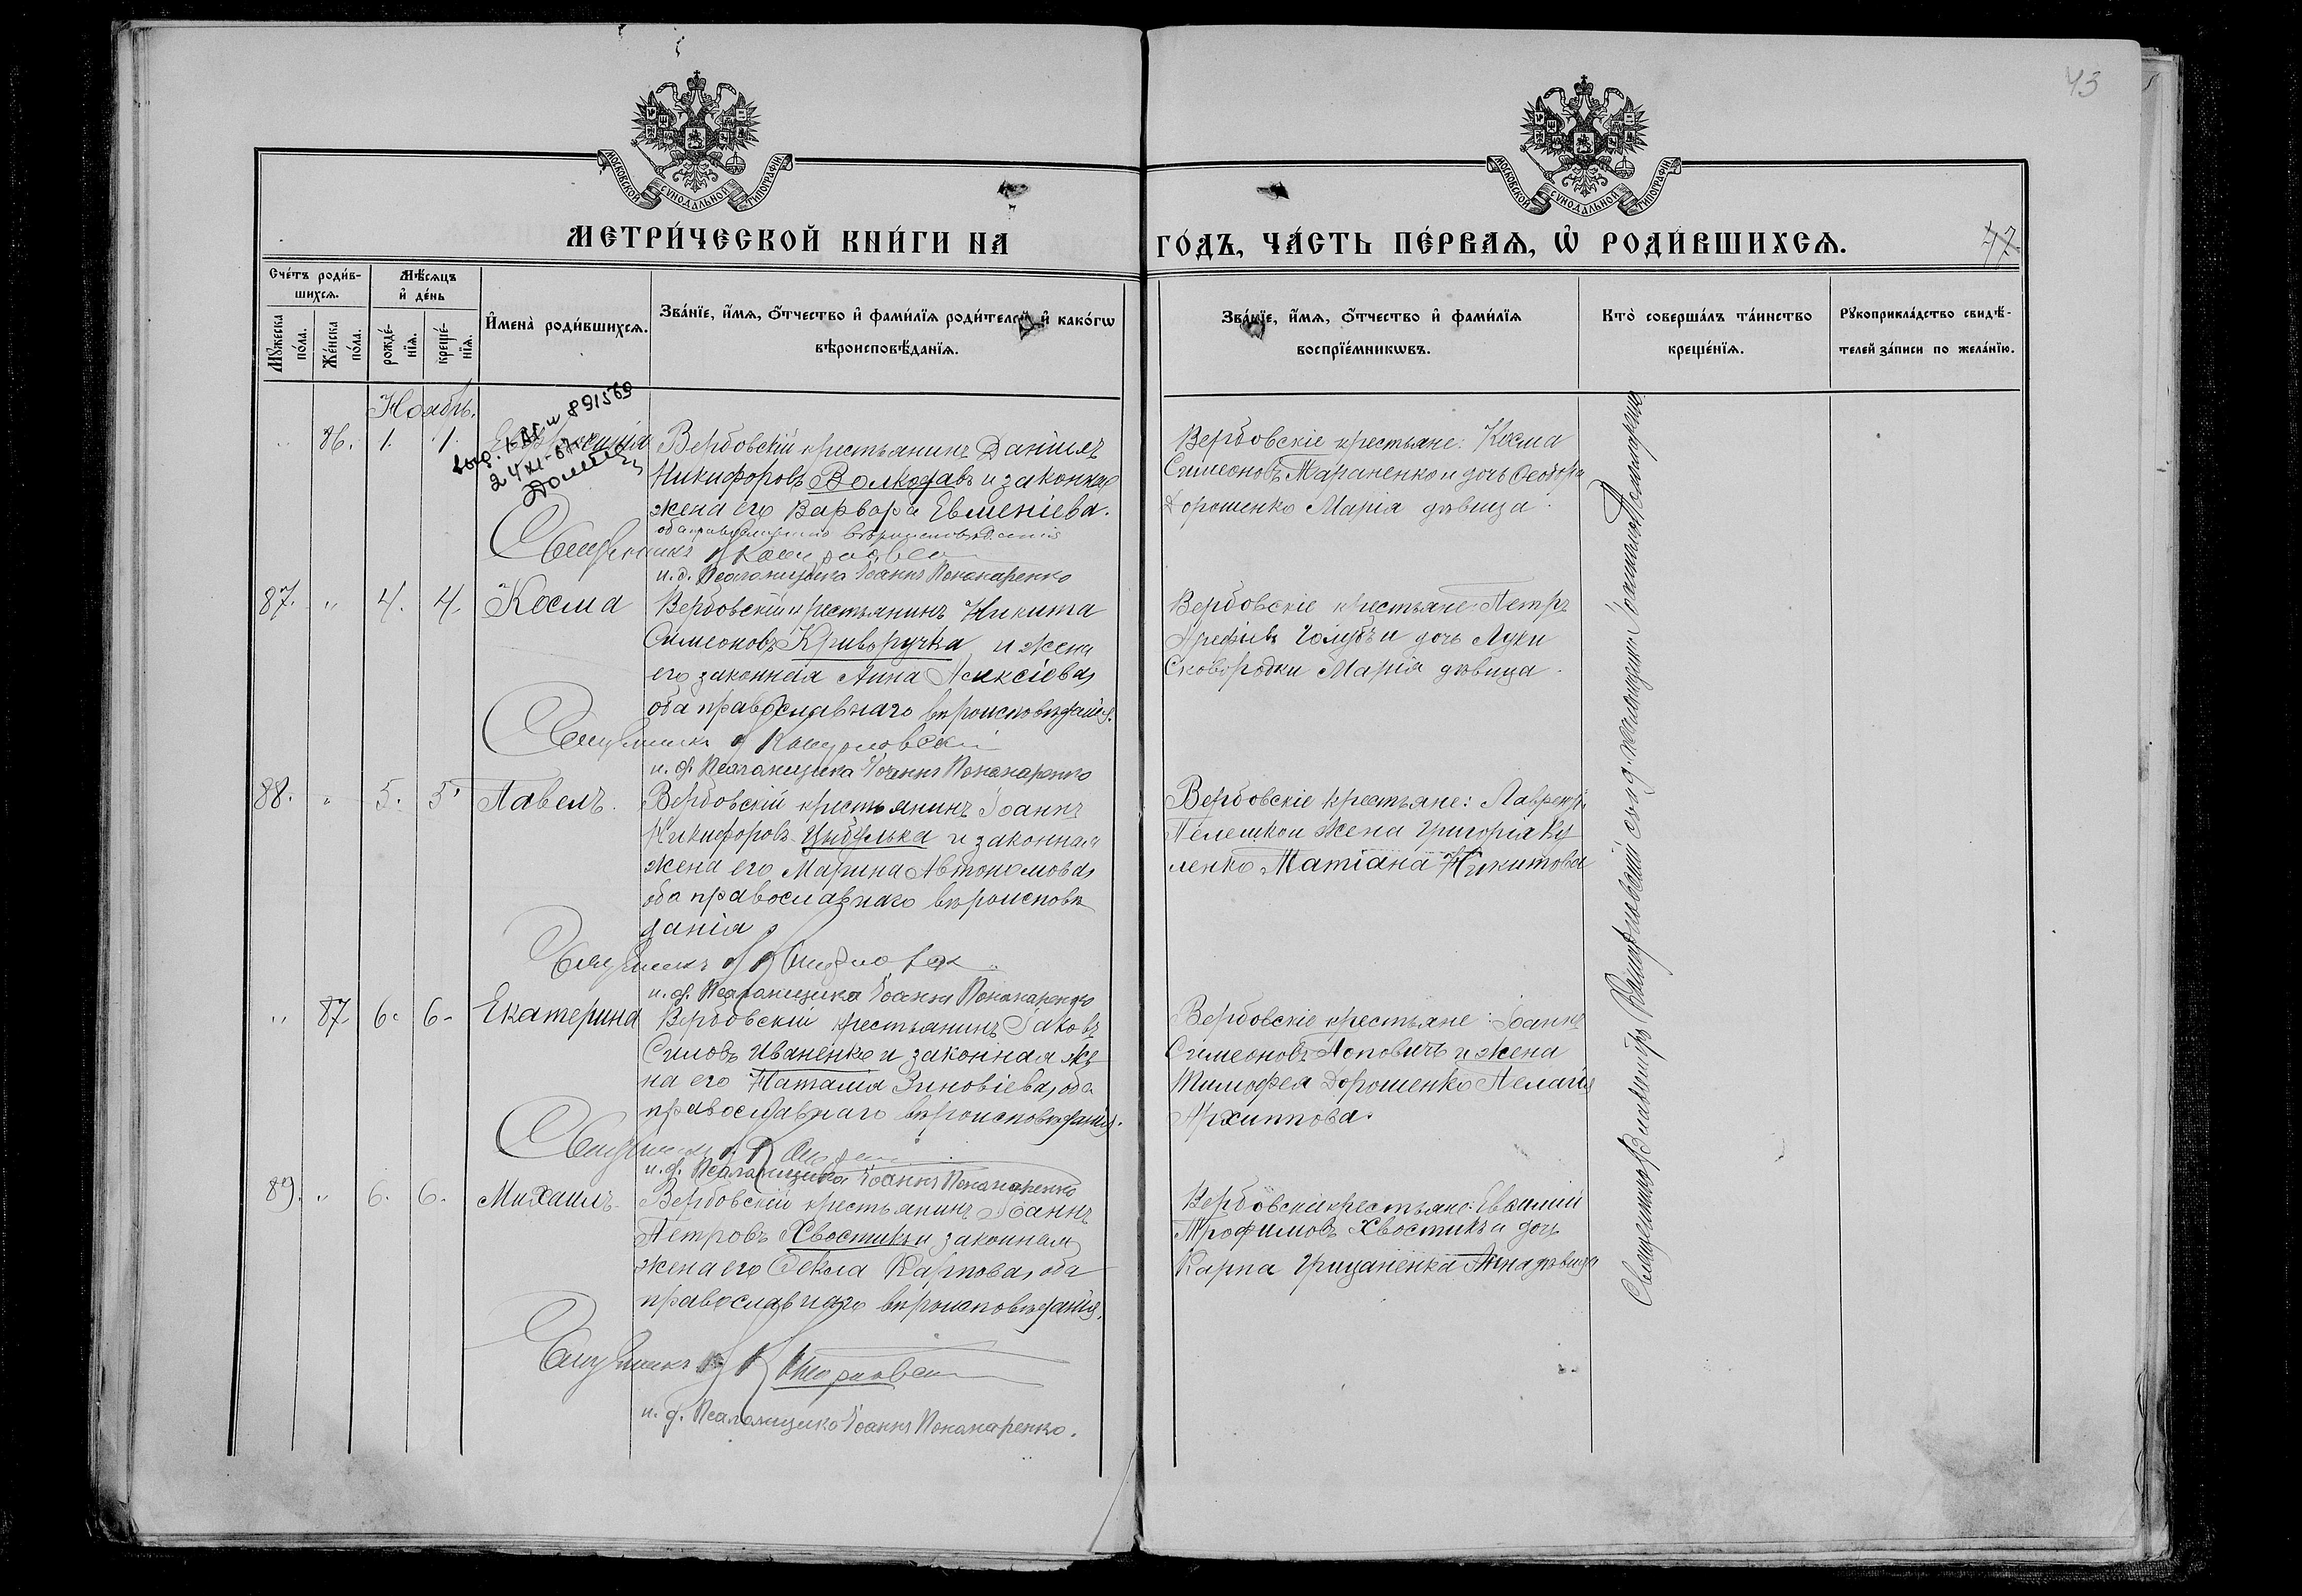 43
МОСКОВСКОЙ СѴНОДАЛЬНОЙ ТИПОГРАФІИ
МОСКОВСКОЙ СѴНОДАЛЬНОЙ ТИПОГРАФІИ
МЕТРИ́ЧЕСКОЙ КНИ́ГИ НА
ГО́ДЪ, ЧА́СТЬ ПЕ́РВАѦ, Ѡ҆ РОДИ́ВШИХСѦ.
47
Сче́тъ роди́в-
шихсѧ.
Мꙋ́жеска
по́ла.
Же́нска
по́ла.
Мѣ́сѧцъ
и҆ де́нь
рожде́-
нїѧ.
креще́-
нїѧ.
И҆мена̀ роди́вшихсѧ.
Зва́нїе, и҆́мѧ, ѻ҆́тчество и҆ фами́лїѧ роди́телей и҆ како́гѡ
вѣроисповѣ́данїѧ.
Зва́нїе, и҆́мѧ, ѻ҆́тчество и҆ фами́лїѧ
воспрїе́мникѡвъ.
Кто̀ соверша́лъ та́инство
креще́нїѧ.
Рꙋкоприкла́дство свидѣ́-
телей за́писи по жела́нїю.
Ноябрь.
891569
" 86. 1. 1.
Вербовскій крестьянинъ Даніилъ
Никифоровъ Волкодавъ и законная
жена его Варвара Евменіева.
оба православнаго вѣроисповѣданія
Священникъ В Кашубовскій
и. д. Псаломщика Іоаннъ Пономаренко
Вербовскіе крестьяне: Косма
Симеоновъ Тараненко и дочь Ѳеодора
Дорошенко Марія дѣвица.
87. " 4. 4. Косма
Вербовскій крестьянинъ Никита
Симеоновъ Криворучка и жена
его законная Анна Алексіева,
оба православнаго вѣроисповѣданія.
Священникъ
и. д. Псаломщика Іоаннъ Пономаренко
Вербовскіе крестьяне: Петръ
Голубъ и дочь Луки
Сковородки Марія дѣвица.
88. " 5. 5. Павелъ.
Вербовскій крестьянинъ Іоаннъ
Никифоровъ Цыбулька и законная
жена его Марина Автономова,
оба православнаго вѣроисповѣ
данія
Священникъ
и. д. Псаломщика Іоаннъ Пономаренко
Вербовскіе крестьяне: Лаврентій
Телешко и жена Григорія Ку
ленко Татіана Никитова
" 87 6. 6. Екатерина
Вербовскій крестьянинъ Іаковъ
Силовъ Иваненко и законная же
на его Наталія Зиновіева, оба
православнаго вѣроисповѣданія.
Священникъ
и. д. Псаломщика Іоаннъ Пономаренко
Вербовскіе крестьяне: Іоаннъ
Симеоновъ Поповичъ и жена
Тимофея Дорошенко Пелагія
Архиппова.
89. " 6. 6. Михаилъ
Вербовскій крестьянинъ Іоаннъ
Петровъ Хвостикъ и законная
жена его Ѳекла Карпова, оба
православнаго вѣроисповѣданія.
Священникъ
и. д. Псаломщика Іоаннъ Пономаренко.
Вербовскіи крестьяне: Евѳимій
Трофимовъ Хвостикъ и дочь
Карпа Грицаненка Анна дѣвица
Священникъ съ и. д. псаломщика Іоанномъ Пономаренко